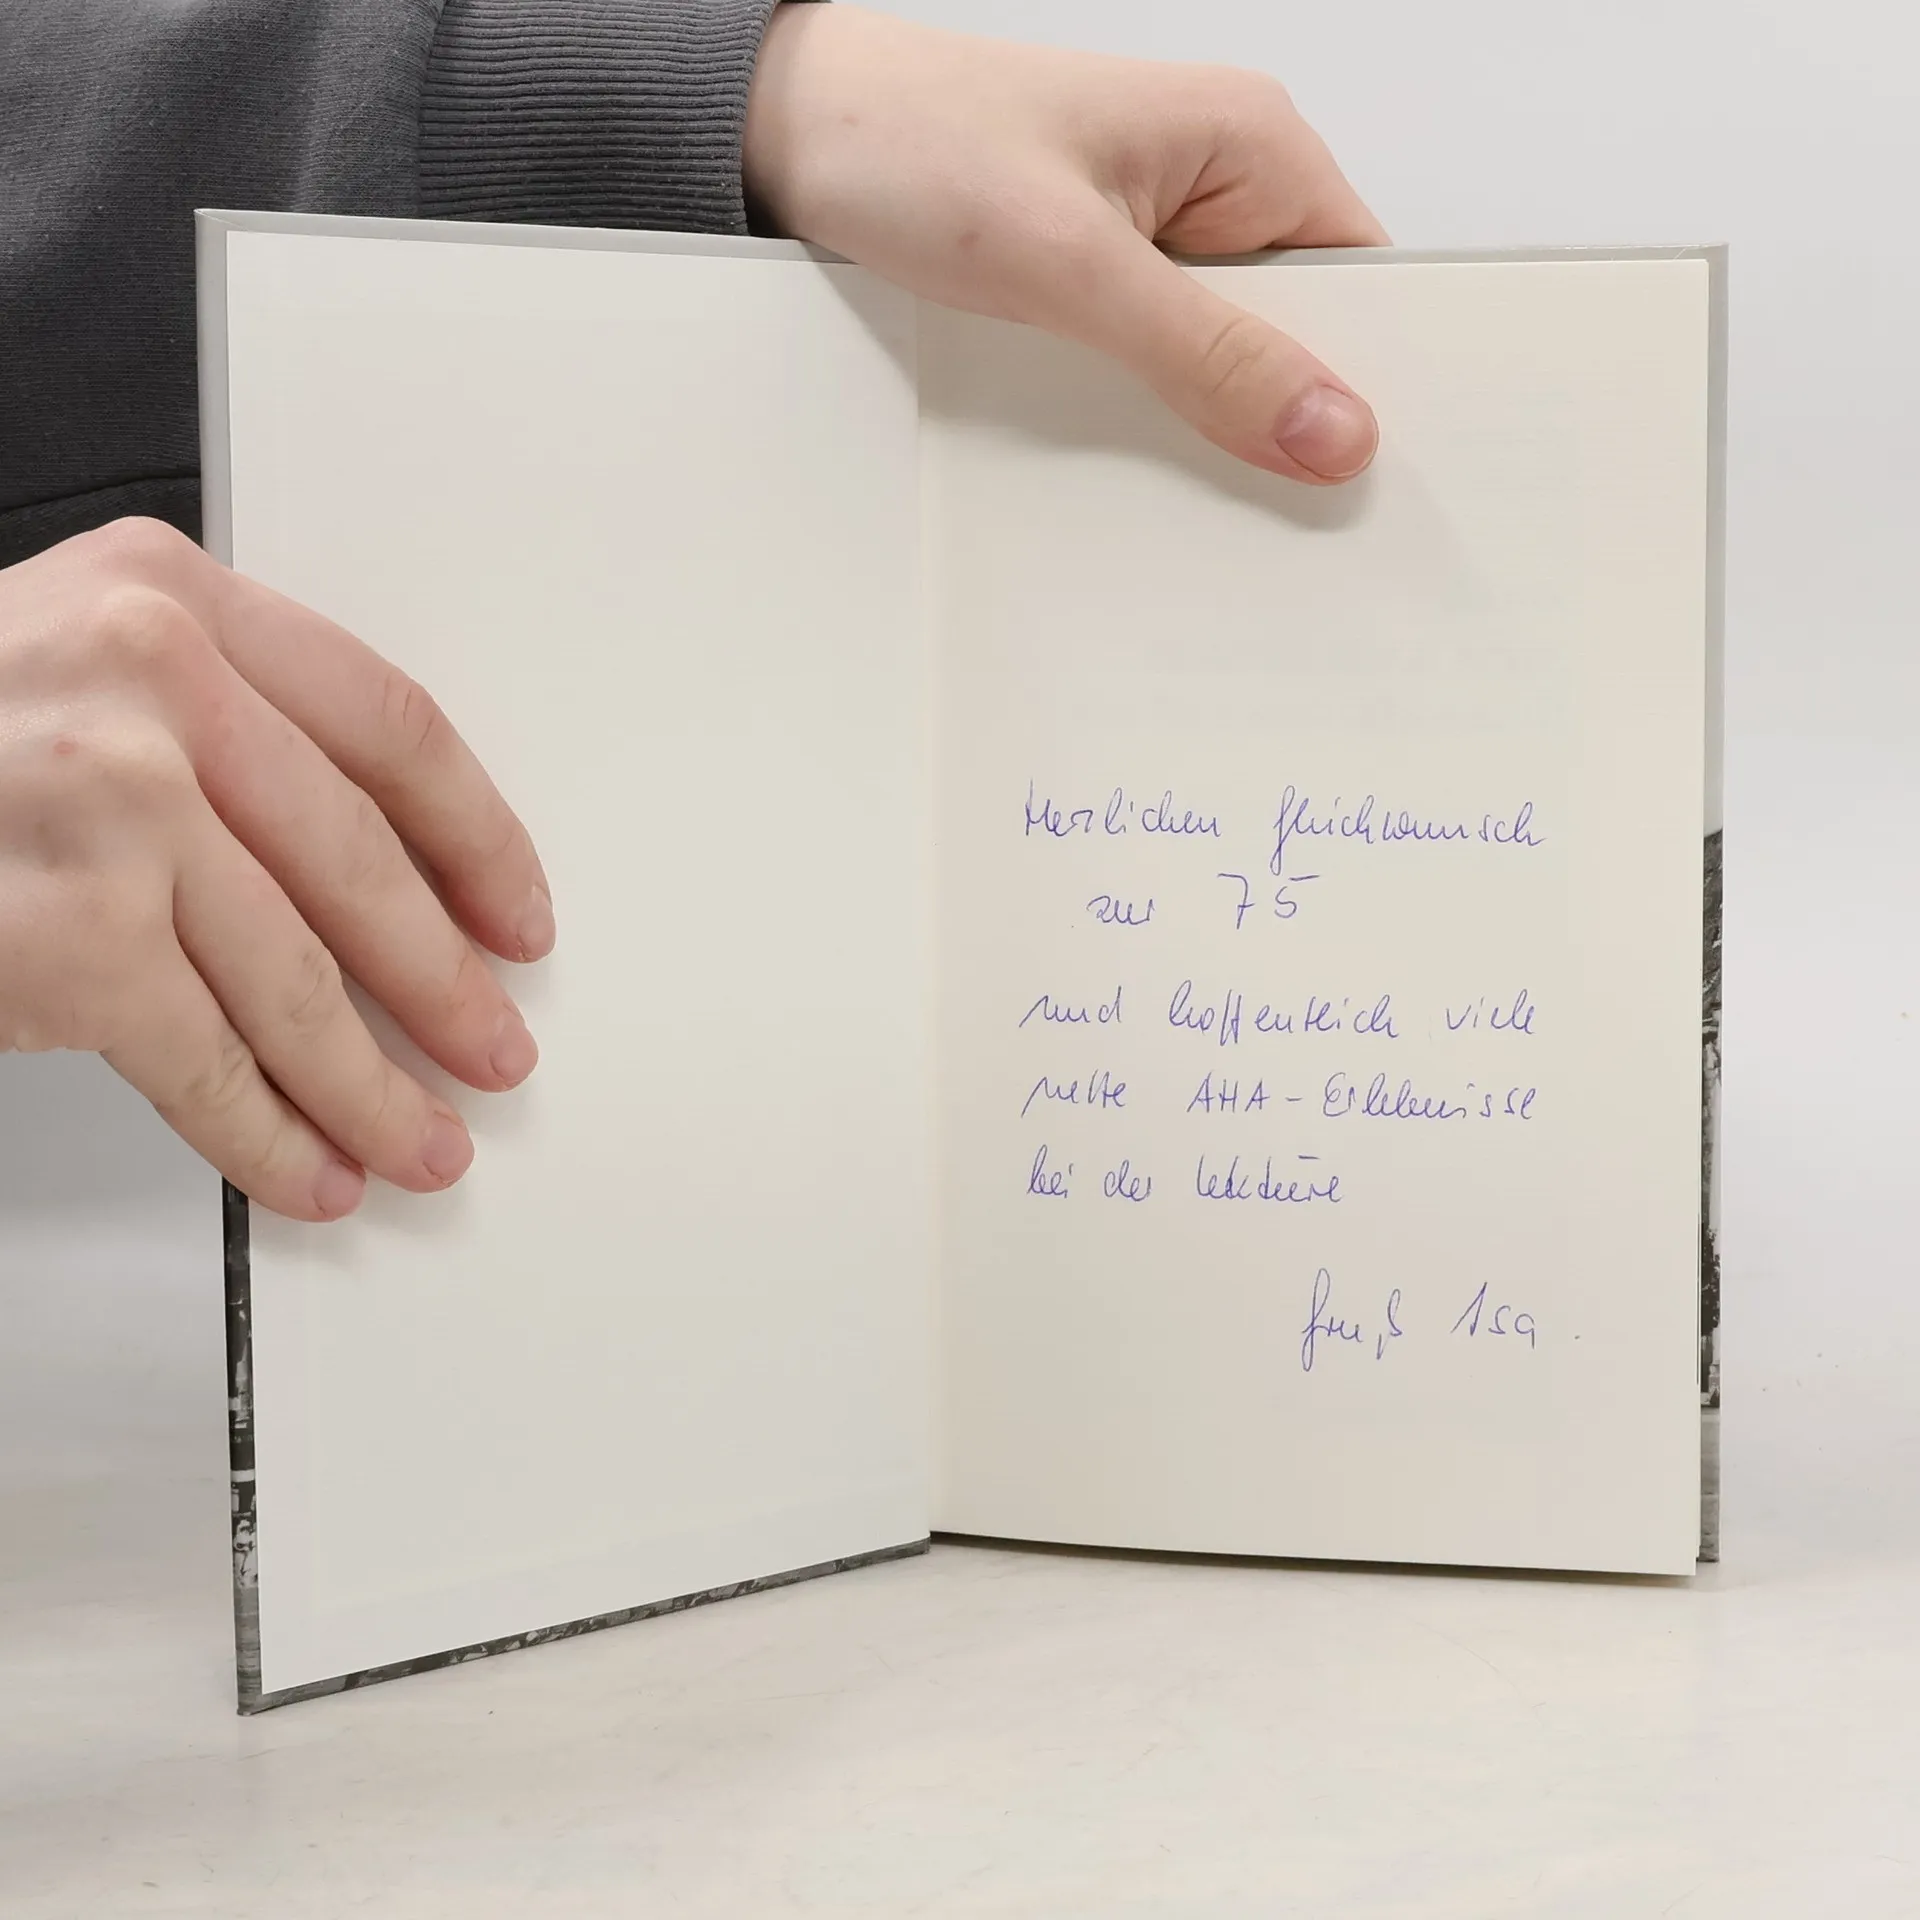 Herzlichen Glückwunsch
zur 75
und hoffentlich viele
nette AHA-Erlebnisse
bei der Lektüre
Gruß Isa.